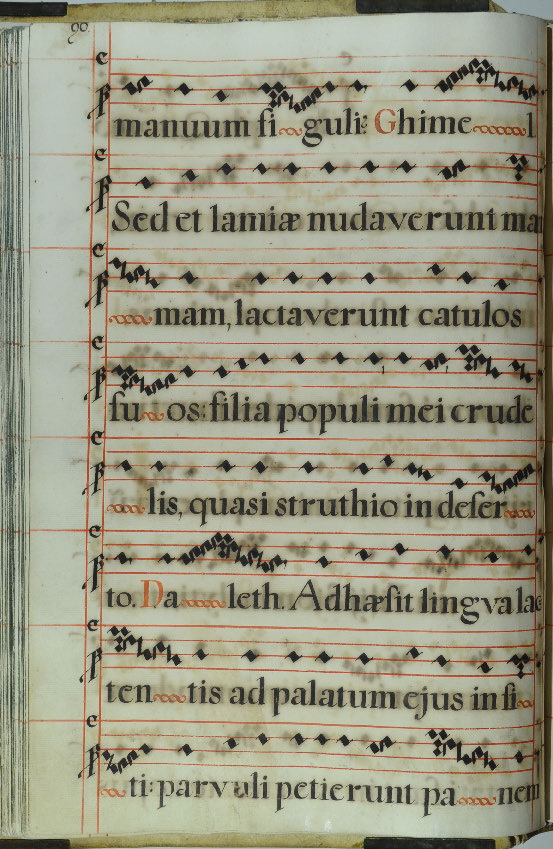 90
manuum si guli: Ghime l
Sed et lamiæ nudaverunt mam
mam, lactaverunt catulos
su os: filia populi mei crude
lis, quasi struthio in deser
to. Da leth. Adhæsit lingva lac
ten tis ad palatum ejus in si
ti: parvuli petierunt pa nem